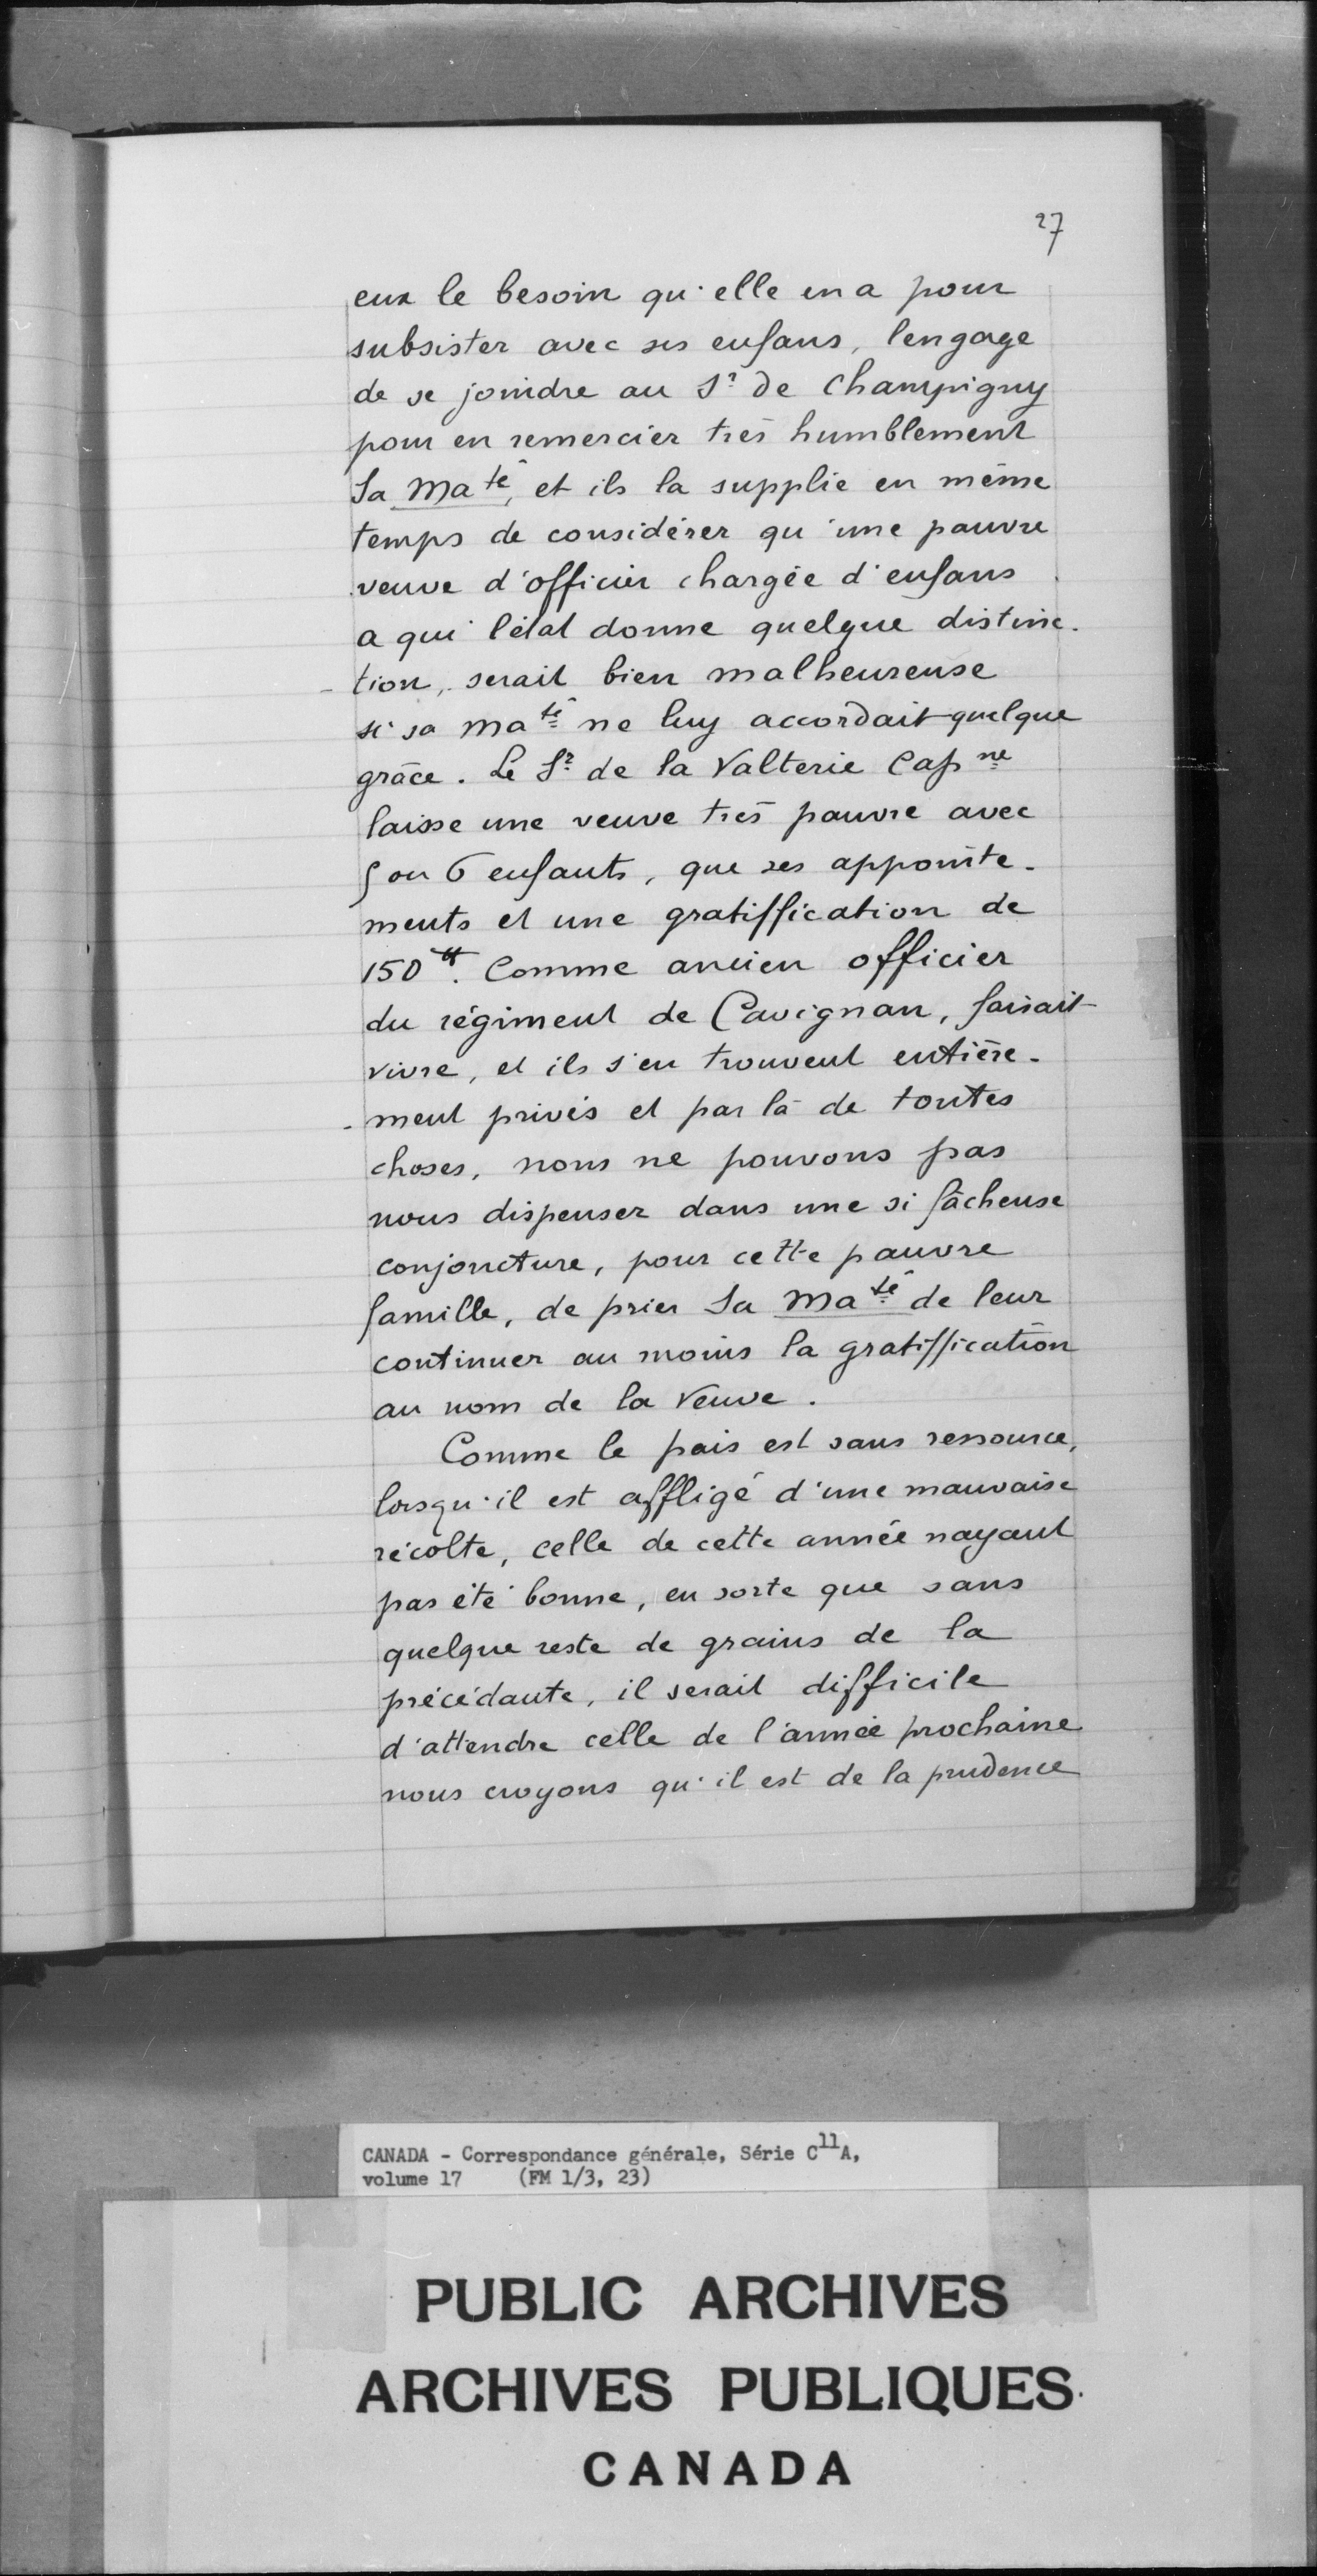 27
eux le besoin qu'elle en a pour
subsister avec ses enfans, lengage
de se joindre au Sr de Champigny
pour en remercier très humblement
Sa Maté, et ils la supplie en même
temps de considérer qu'une pauvre
veuve d'officier chargée d'enfans
a qui l'état donne quelque distinc-
-tion, serait bien malheureuse
si sa maté ne luy accordait quelque
grâce. Le Sr de la Valterie Capne
laisse une veuve très pauvre avec
5 ou 6 enfants, que ses appointe-
ments et une gratiffication de
150 ₶. Comme ancien officier
du régiment de Cavignan, faisait
vivre, et ils s'en trouvent entière-
-ment privés et par là de toutes
choses, nous ne pouvons pas
nous dispenser dans une si fâcheuse
conjoncture, pour cette pauvre
famille, de prier Sa Maté de leur
continuer au moins la gratiffication
au nom de la Veuve.
Comme le pais est sans ressource,
lorsqu'il est affligé d'une mauvaise
récolte, celle de cette année nayant
pas été bonne, en sorte que sans
quelque reste de grains de la
précédante, il serait difficile
d'attendre celle de l'année prochaine
nous croyons qu'il est de la prudence
CANADA - Correspondance générale, Série C11A,
volume 17 (FM 1/3, 23)
PUBLIC ARCHIVES
ARCHIVES PUBLIQUES
CANADA